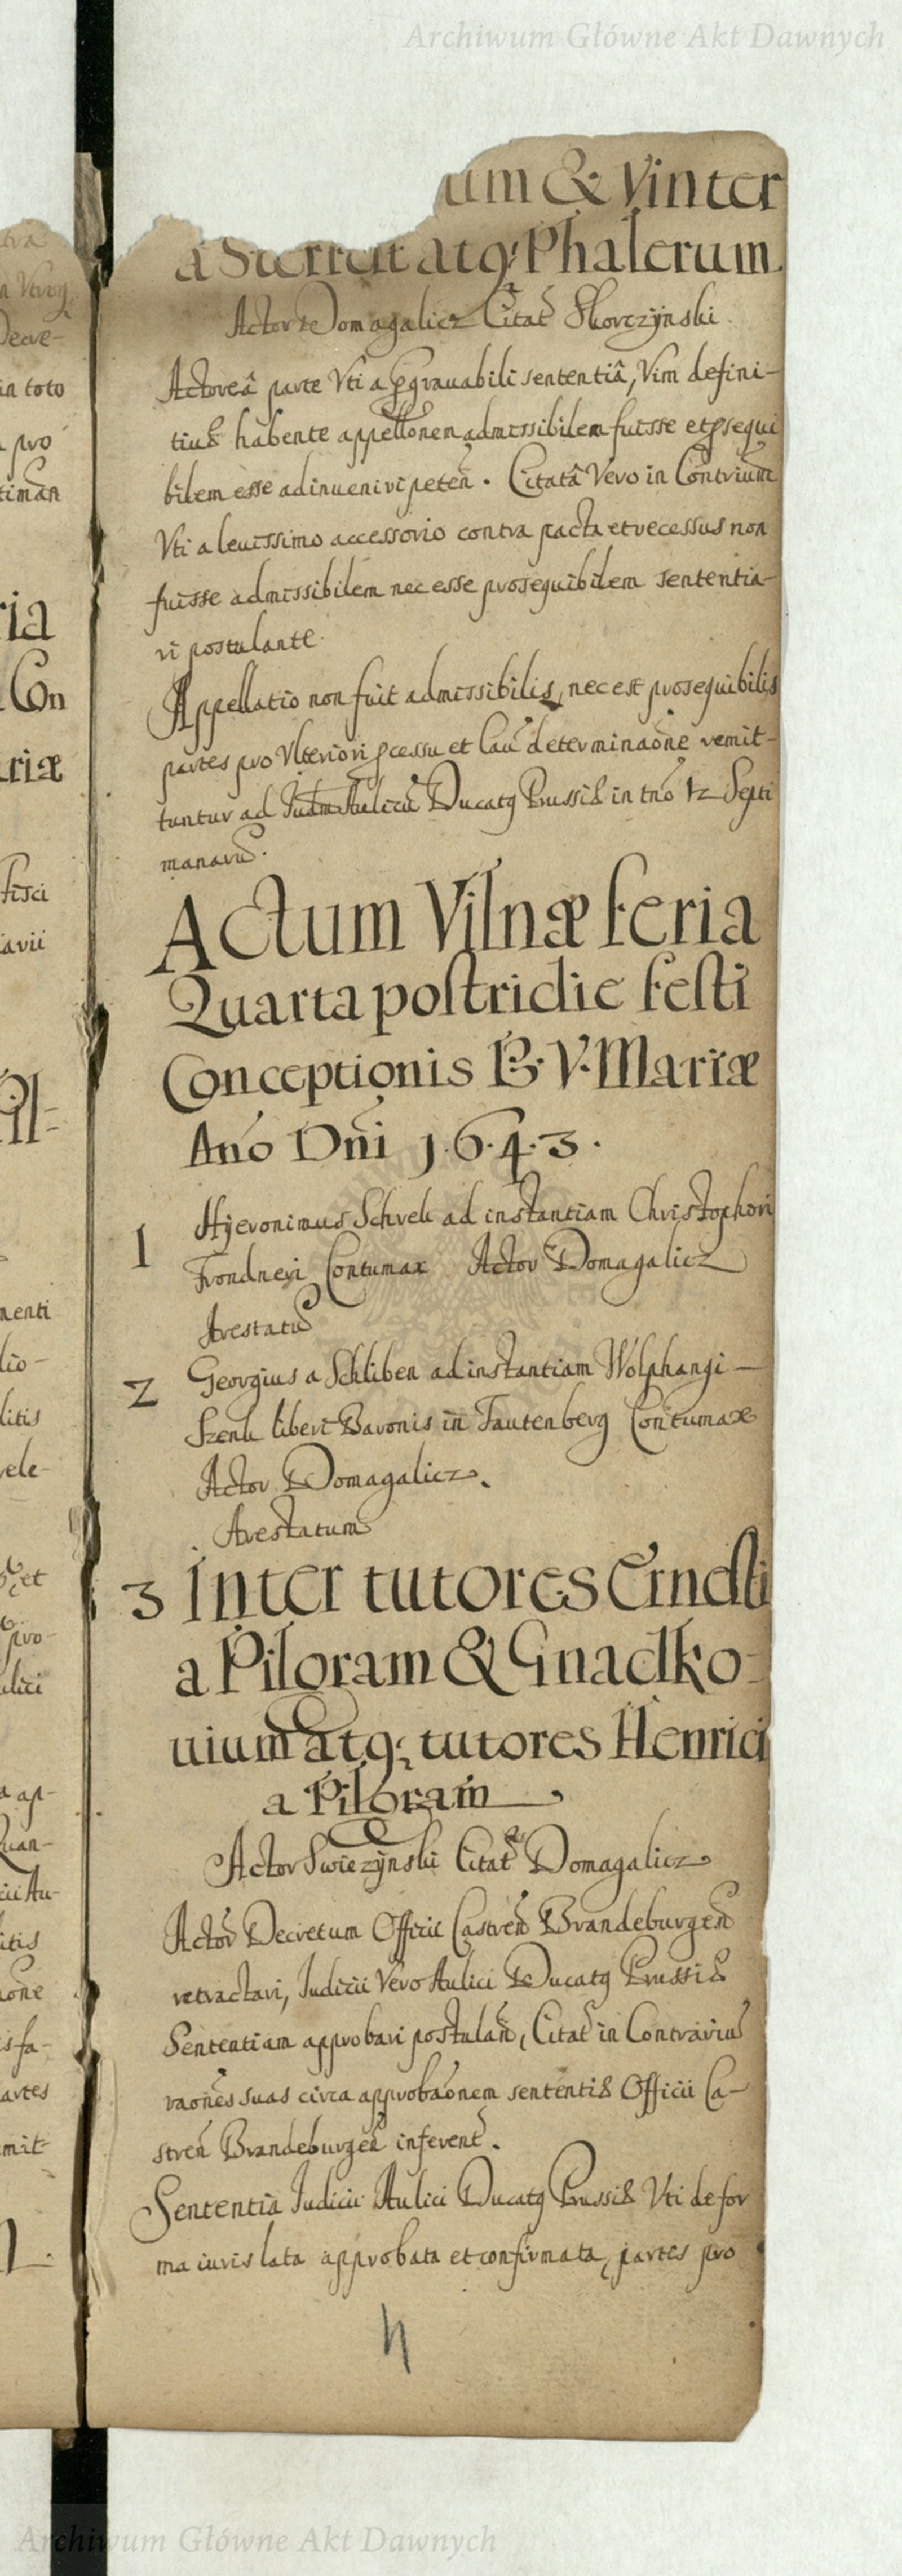 Archiwum Główne Akt Dawnych
um & Vinter
a atq; Phalerum
Actor Domagalicz Citat Skorczÿnski
Actoreâ parte Vti a pgrauabili sententiâ, Vim defini-
tiuæ habente appellonem admissibilem fuisse et psequi
bilem esse adinueniri peten. Citatâ Vero in Contrium
Vti a leuissimo accessorio contra pacta et recessus non
fuisse admissibilem nec esse prosequibilem sententia-
ri postulante.
Appellatio non fuit admissibilis, nec est prosequibilis
partes pro Vlteriori pcessu et Cau determinaone remit-
tuntur ad Iudm Aulicu Ducatq Prussiæ in tno 12 Septi
manaru.
Actum Vilnæ feria
Quarta postridie festi
Conceptionis B. V. Mariæ
Ano Dni 1.6.4.3.
1 Hÿeronimus Schreli ad instantiam Christophori
Frondneri Contumax Actor Domagalicz
Arestatu
2 Georgius a Schliben ad instantiam Wolphangi
Szenk liberi Baronis in Tautenberg Contumax
Actor Domagalicz.
Arestatum
3 Inter tutores Ernesti
a Piloram & Gnadko-
uium atq; tutores Henrici
a Piloram
Actor Swiezÿnski Citat Domagalicz
Actor Decretum Officii Castren Brandeburgen
retractari, Iudicii Vero Aulici Ducatq Prussiæ
Sententiam approbari postulan, Citat in Contrariu
raones suas circa approbaonem sententiæ Officii Ca-
stren Brandeburgen inferent.
Sententia Iudicii Aulici Ducatq Prussiæ Vti de for
ma iuris lata approbata et confirmata, partes pro
4
ria
Con
riæ
fisci
avii
menti
lio-
litis
ele-
et
pro-
ulici
ap-
Quan-
cii Au-
litis
aone
isfa-
artes
mit-
Archiwum Główne Akt Dawnych